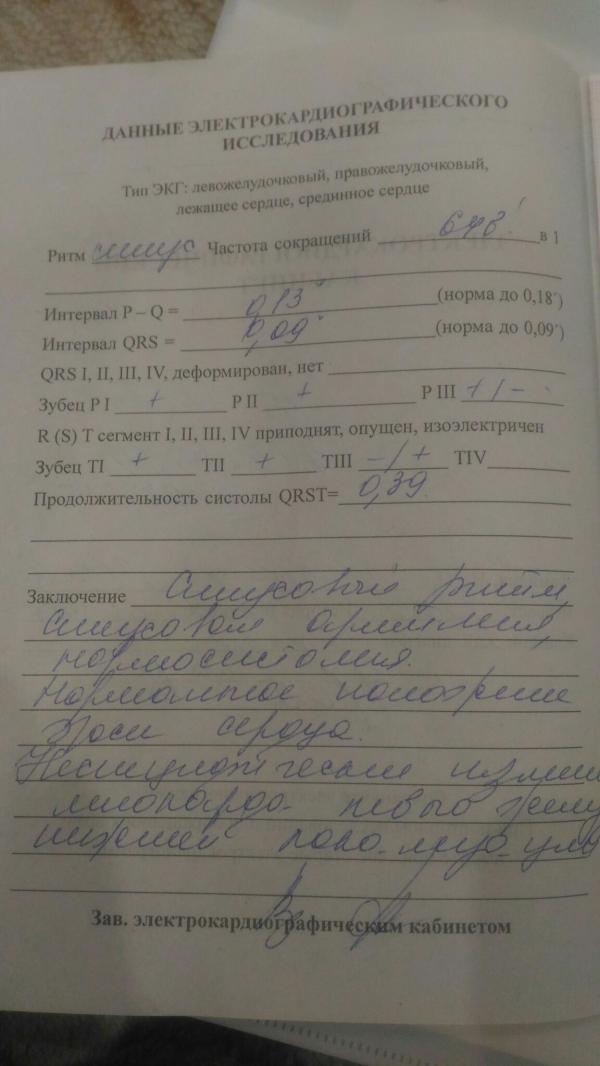 ДАННЫЕ ЭЛЕКТРОКАРДИОГРАФИЧЕСКОГО
ИССЛЕДОВАНИЯ
Тип ЭКГ: левожелудочковый, правожелудочковый,
лежащее сердце, срединное сердце
Ритм синус Частота сокращений в 1
Интервал P – Q = 0,13" (норма до 0,18")
Интервал QRS = 0,09" (норма до 0,09")
QRS I, II, III, IV, деформирован, нет
Зубец P I + P II + P III +/-
R (S) T сегмент I, II, III, IV приподнят, опущен, изоэлектричен
Зубец TI + TII + TIII -/+ TIV
Продолжительность систолы QRST= 0,39
Заключение Синусовый ритм,
синусовая аритмия,
нормосистолия.
Нормальное положение
эоси сердца.
Неспецифические
миокарда левого
нижней
Зав. электрокардиографическим кабинетом